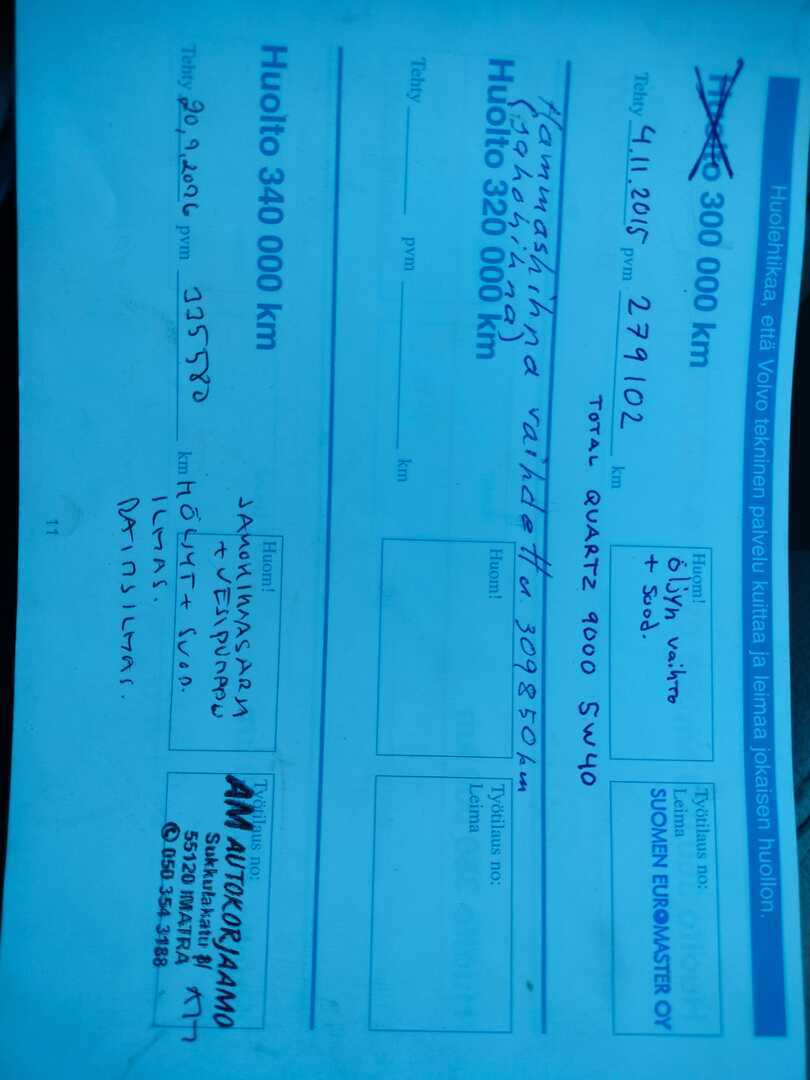 Huolehtikaa, että Volvo tekninen palvelu kuittaa ja leimaa jokaisen huollon.
Huolto 300 000 km
Tehty 4.11.2015 pvm 279102 km
TOTAL QUARTZ 9000 5W40
Huom!
öljyn vaihto
+ suod.
Työtilaus no:
Leima
SUOMEN EUROMASTER OY
Hammashihna vaihdettu 309850 km
(jakohihna)
Huolto 320 000 km
Tehty pvm km
Huom!
Työtilaus no:
Leima
Huolto 340 000 km
Tehty pvm 335580 km
Huom!
JAKOHIHNASARJA
+ VESIPUMPPU
MÖLJYT + SUOD.
ILMAS.
RAITISILMAS.
Työtilaus no:
AM AUTOKORJAAMO
Sukkulakatu
55120 IMATRA
✆ 050 354 3188
11